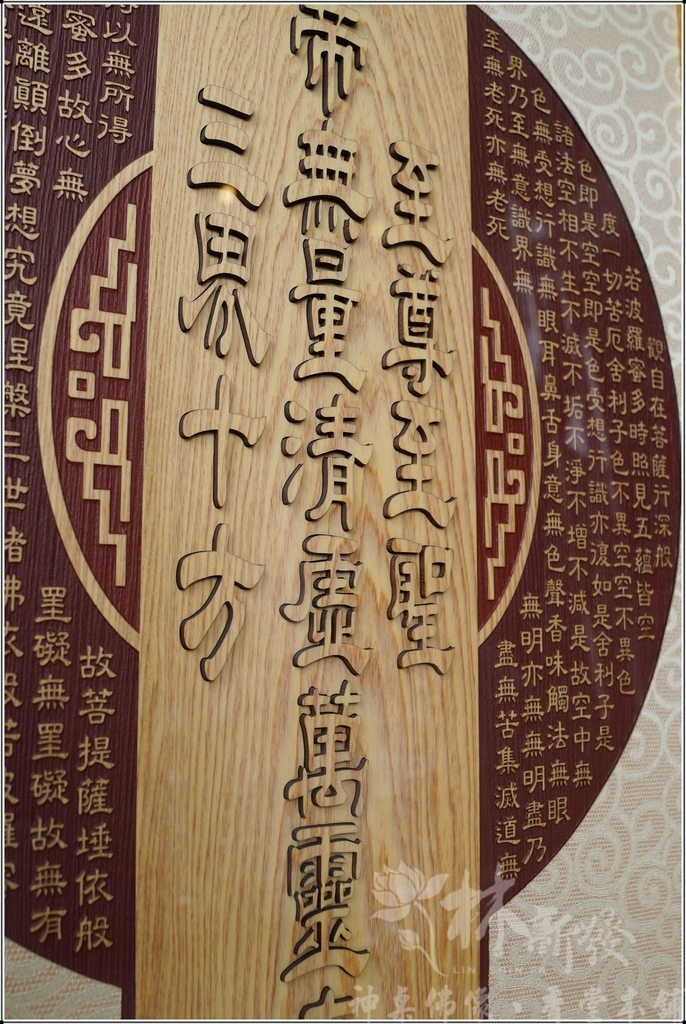 觀自在菩薩行深般
若波羅蜜多時照見五蘊皆空
度一切苦厄舍利子色不異空空不異色
色即是空空即是色受想行識亦復如是舍利子是
諸法空相不生不滅不垢不淨不增不減是故空中無
色無受想行識無眼耳鼻舌身意無色聲香味觸法無眼
界乃至無意識界無
無明亦無無明盡乃
至無老死亦無老死
盡無苦集滅道無
至尊至聖
帝無量清虛萬靈
三界十方
得以無所得
故菩提薩埵依般
蜜多故心無
罣礙無罣礙故無有
遠離顛倒夢想究竟涅槃三世諸佛依般若波羅
林新發
神桌佛像